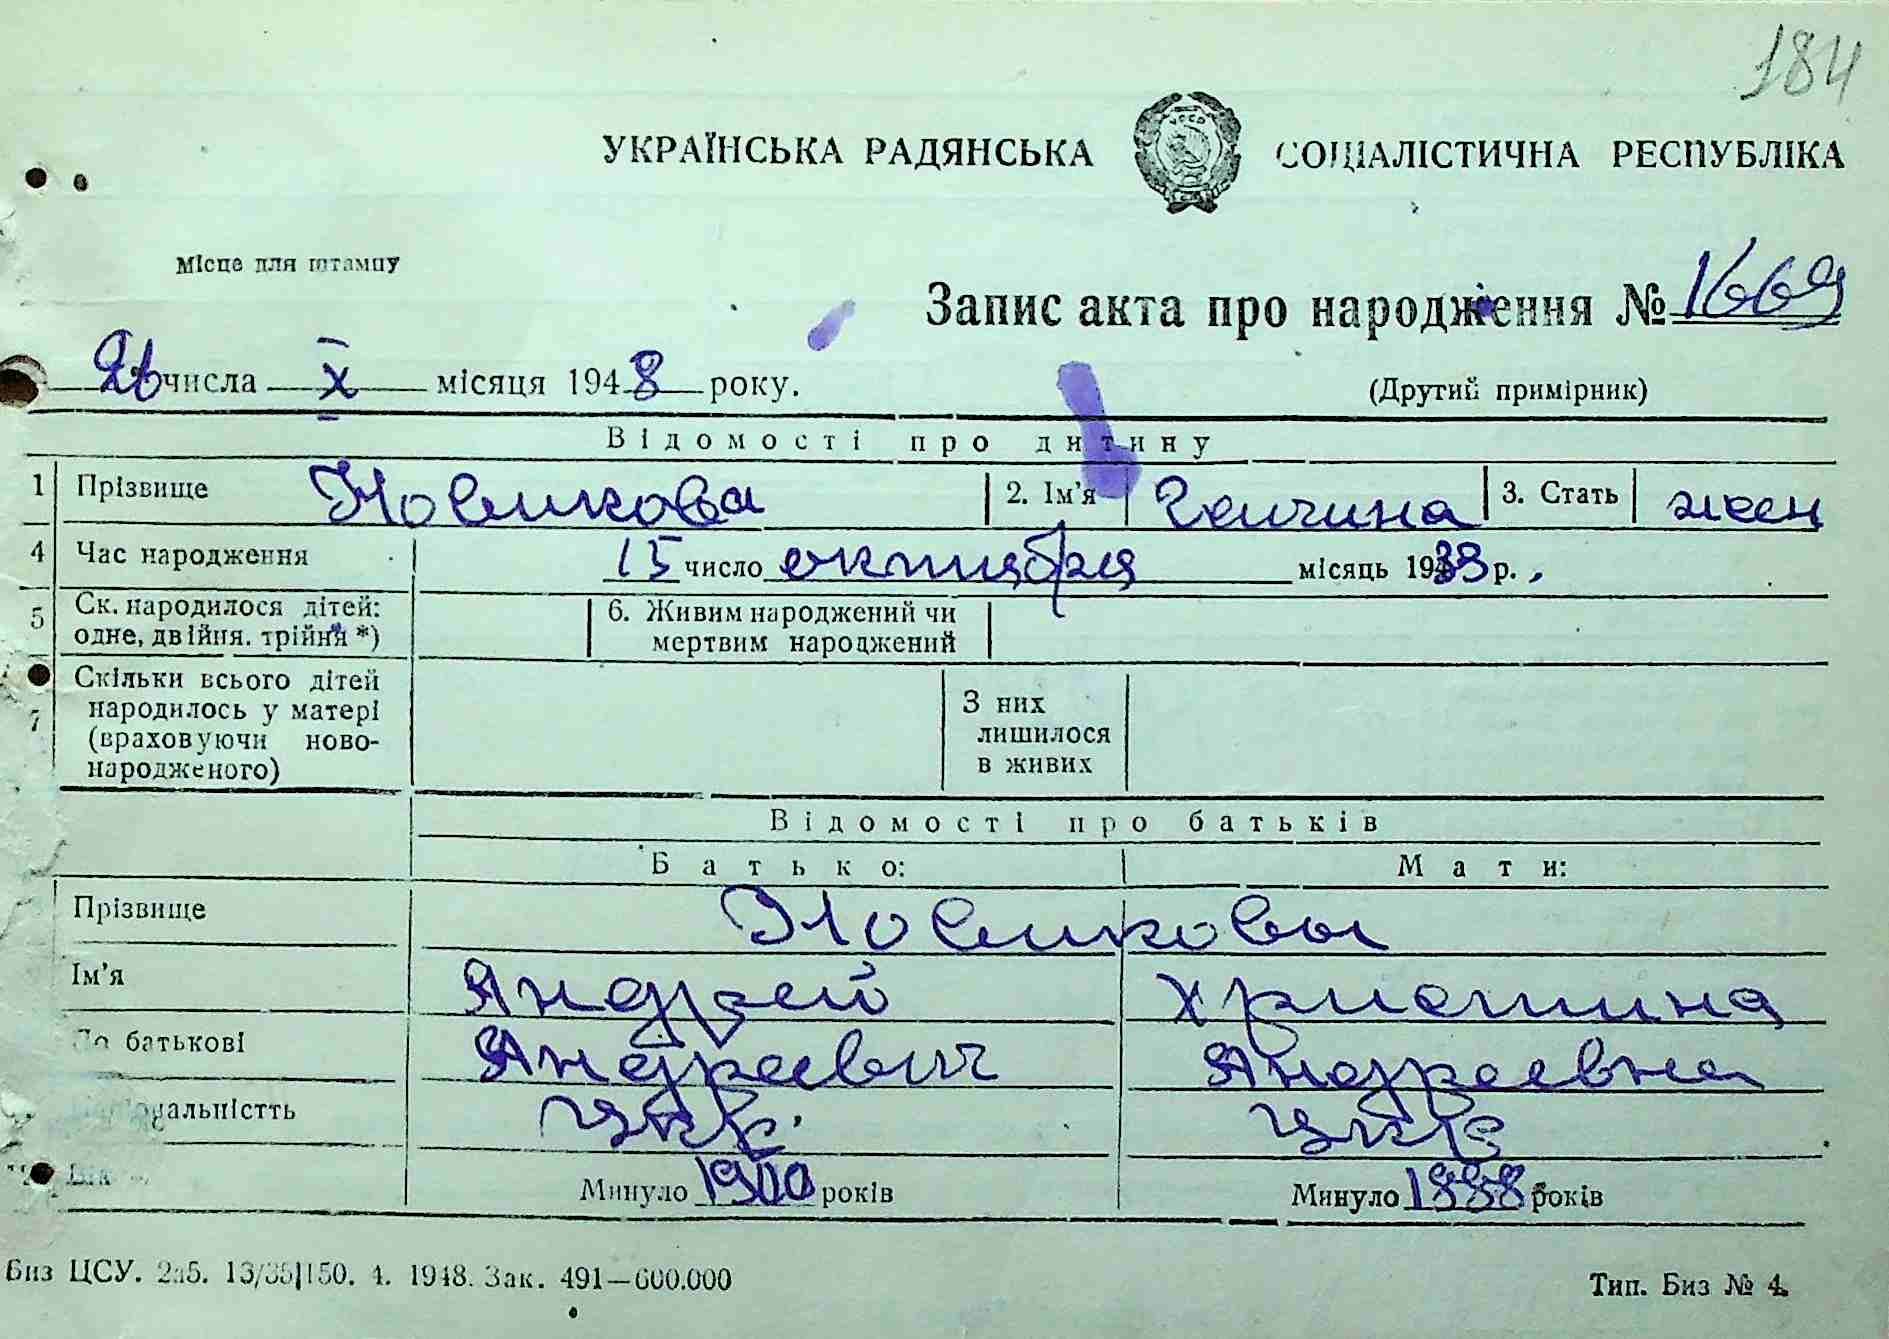 184
УКРАЇНСЬКА РАДЯНСЬКА СОЦІАЛІСТИЧНА РЕСПУБЛІКА
Місце для штампу
Запис акта про народження № 1669
26 числа X місяця 1948 року.
(Другий примірник)
Відомості про дитину
1 Прізвище Новикова 2. Ім'я 3. Стать жен
4 Час народження 15 число октября місяць 1938 р.
5 Ск. народилося дітей: одне, двійня, трійня *) 6. Живим народжений чи мертвим народжений
7 Скільки всього дітей народилось у матері (враховуючи новонародженого) З них лишилося в живих
Відомості про батьків
Батько: Мати:
Прізвище Новиковы
Ім'я Андрей Христина
По батькові Андреевич Андреевна
Національністть укр. укр
Вік Минуло 1900 років Минуло 1898 років
Биз ЦСУ. 2а5. 13/35|150. 4. 1948. Зак. 491—600.000 Тип. Биз № 4.